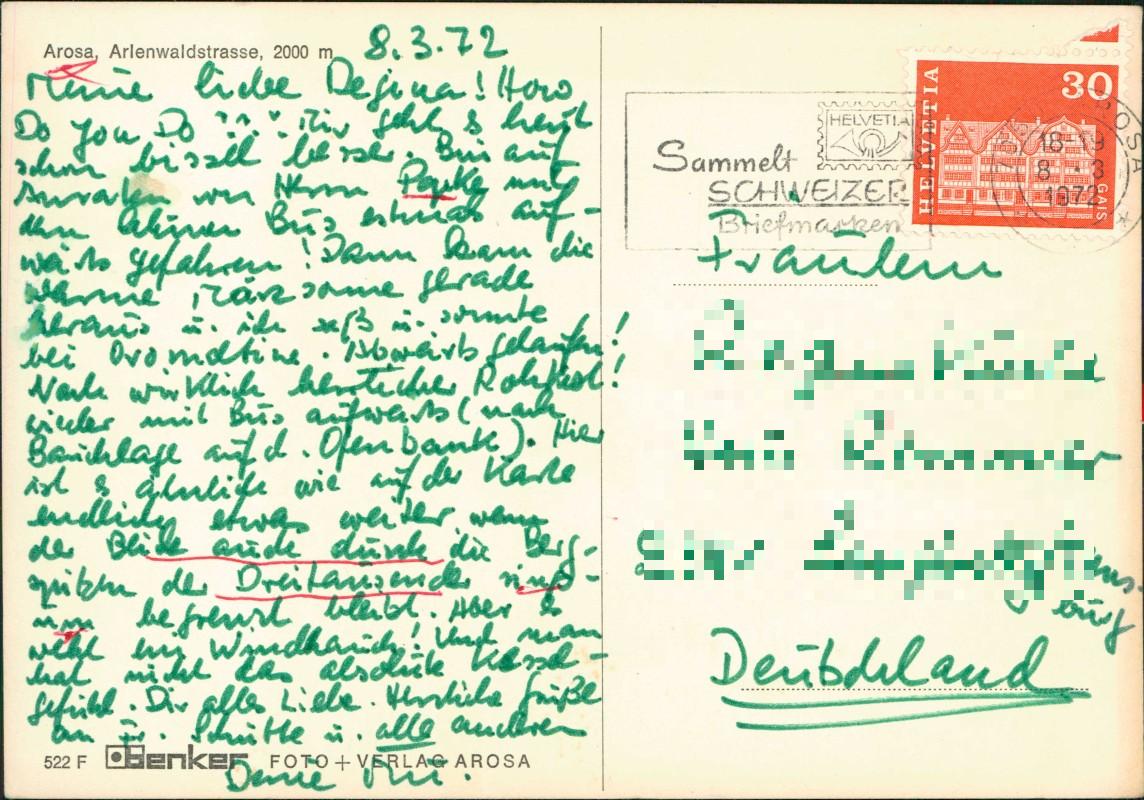 Arosa, Arlenwaldstrasse, 2000 m
8.3.72
Meine liebe Regina! How
Do you Do ??" Mir geht s heut
schon bissell besser. Bin auf
Anraten von Herrn mit
den Bus etwas auf-
wärts gefahren! Dann kam die
warme Märzsonne gerade
heraus u. ich saß u. sonnte
bei . Abwärts gelaufen!
Nach wirklich herrlicher Rohkost!
wieder mit Bus aufwärts (nach
Bauchlage auf d. Ofenbank). Hier
ist s ähnlich wie auf der Karte
endlich etwas weiter wenn
der Blick auch durch die Berg-
spitzen der Dreitausender
begrenzt bleibt. Aber s
weht ein Windhauch! Und man
hat nicht das absolute Kessel-
gefühl. Dir alles Liebe. Herzliche Grüße
an Fr. u. alle anderen
Deine
522 F Benker FOTO + VERLAG AROSA
HELVETIA
Sammelt
SCHWEIZER
Briefmarken
HELVETIA
30
GAIS
AROSA
18-19
8.-3
1972
Fräulein
Deutschland